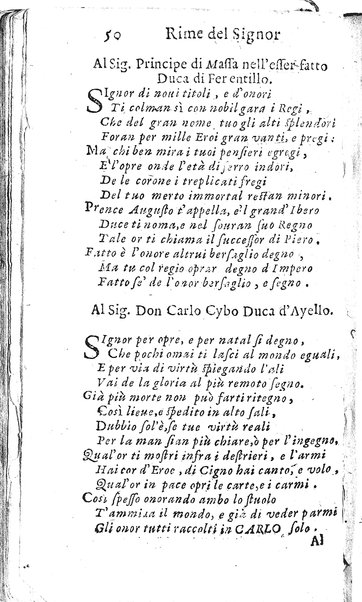 50 Rime del Signor
Al Sig. Principe di Massa nell'esser fatto
Duca di Ferentillo.
SIgnor di noui titoli, e d'onori
Ti colman sì con nobil gara i Regi,
Che del gran nome tuo gli alti splendori
Foran per mille Eroi gran vanti, e pregi:
Ma chi ben mira i tuoi pensieri egregi,
E l'opre onde l'età di ferro indori,
De le corone i treplicati fregi
Del tuo merto immortal restan minori.
Prence Augusto t'appella, e'l grand'Ibero
Duce ti noma, e nel souran suo Regno
Tale or ti chiama il successor di Piero.
Fatto è l'onore altrui bersaglio degno,
Ma tu col regio oprar degno d'Impero
Fatto se' de l'onor bersaglio, e segno.
Al Sig. Don Carlo Cybo Duca d'Ayello.
SIgnor per opre, e per natal sì degno,
Che pochi omai ti lasci al mondo eguali,
E per via di virtù spiegando l'ali
Vai de la gloria al più remoto segno.
Già più morte non può farti ritegno,
Così lieue, e spedito in alto sali,
Dubbio sol'è, se tue virtù reali
Per la man sian più chiare, ò per l'ingegno.
Qual'or ti mostri infra i destrieri, e l'armi
Hai cor d'Eroe, di Cigno hai canto, e volo,
Qual'or in pace opri le carte, e i carmi.
Così spesso onorando ambo lo stuolo
T'ammira il mondo, e già veder parmi
Gli onor tutti raccolti in CARLO solo.
Al